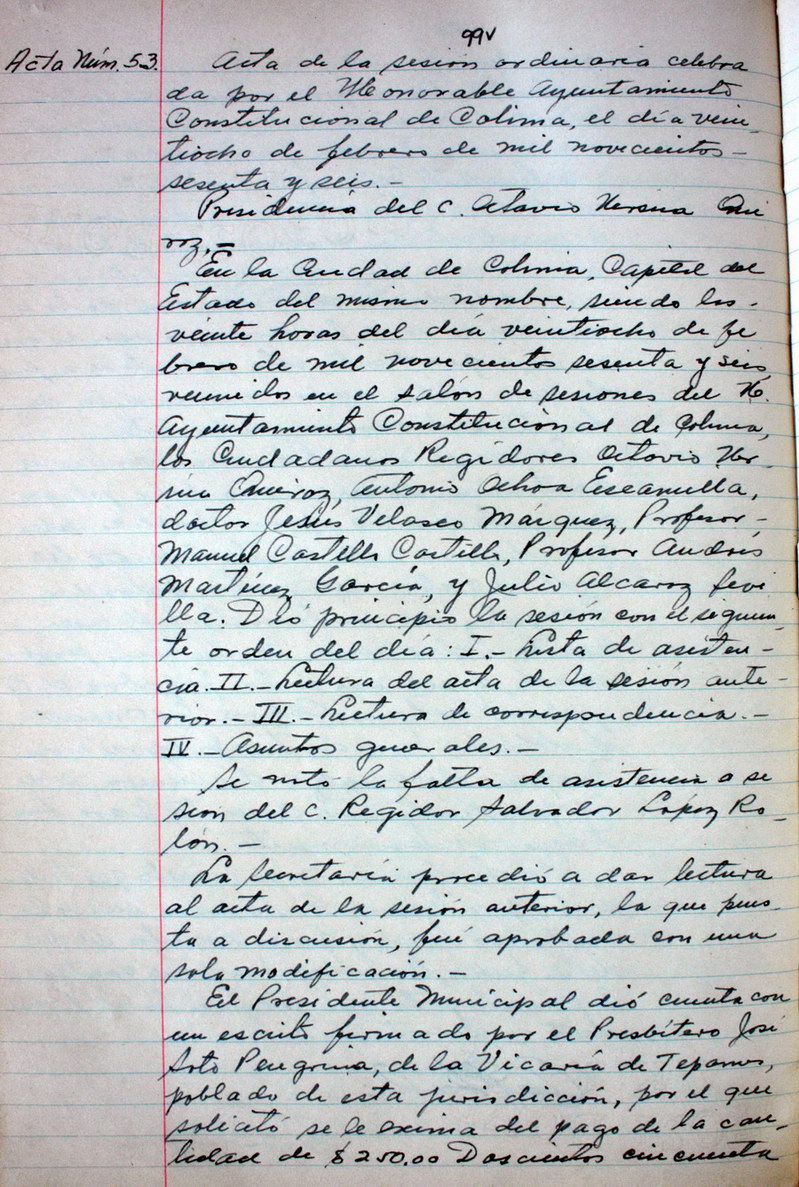 99v
Acta Núm. 53.
Acta de la sesión ordinaria celebra
da por el Honorable Ayuntamiento
Constitucional de Colima, el día vein-
tiocho de febrero de mil novecientos-
sesenta y seis.-
Presidencia del C. Octavio Urzúa Qui
roz.-
En la Ciudad de Colima, Capital del
Estado del mismo nombre, siendo las-
veinte horas del día veintiocho de fe
brero de mil novecientos sesenta y seis,
reunidos en el salón de sesiones del H.
Ayuntamiento Constitucional de Colima,
los Ciudadanos Regidores Octavio Ur-
zúa Quiroz, Antonio Ochoa Escamilla,
doctor Jesús Velasco Márquez, Profesor-
Manuel Castillo Castillo, Profesor Andrés
Martínez García, y Julio Alcaraz Sevi
lla. Dió principio la sesión con el siguien-
te orden del día: I.- Lista de asisten-
cia. II.- Lectura del acta de la sesión ante-
rior.- III.- Lectura de correspondencia.-
IV.- Asuntos generales.-
Se notó la falta de asistencia a se
sión del C. Regidor Salvador López Ro-
lón.-
La Secretaría procedió a dar lectura
al acta de la sesión anterior, la que pues-
ta a discusión, fué aprobada con una
sola modificación.-
El Presidente Municipal dió cuenta con
un escrito firmado por el Presbítero José
Soto Peregrina, de la Vicaría de Tepames,
poblado de esta jurisdicción, por el que
solicitó se le exima del pago de la can-
tidad de $250.00 Doscientos cincuenta